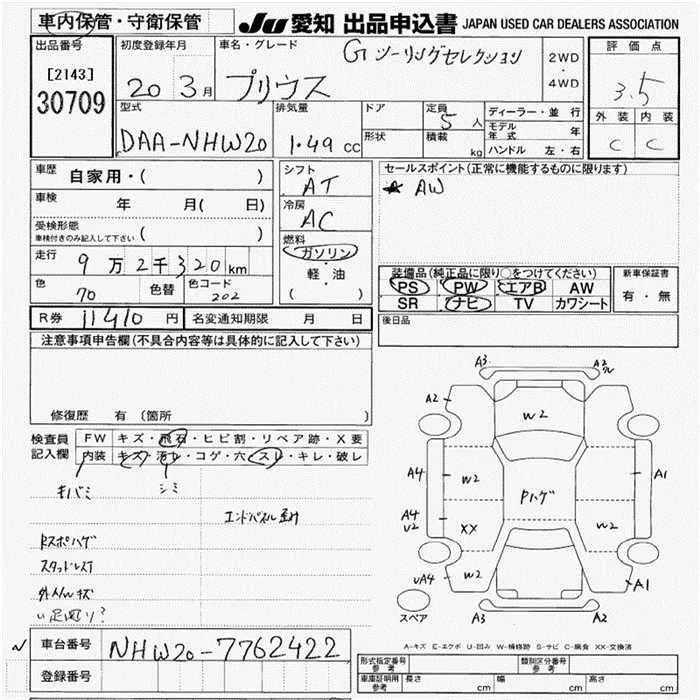 車内保管・守衛保管
JU 愛知 出品申込書 JAPAN USED CAR DEALERS ASSOCIATION
出品番号
[2143]
30709
初度登録年月
20 3月
車名・グレード
プリウス
Gツーリングセレクション
2WD
・
4WD
評価点
3.5
外装 内装
C C
型式
DAA-NHW20
排気量
1.49 cc
ドア
形状
定員
5人
積載
kg
ディーラー・並行
モデル年式 年
ハンドル 左・右
車歴
自家用・( )
車検
年 月( 日)
受検形態
車検付きのみ記入して下さい ( )
走行
9万2千320km
色
70
色替
色コード
202
シフト
AT
冷房
AC
燃料
ガソリン
・
軽・油
( )
セールスポイント(正常に機能するものに限ります)
★ AW
装備品(純正品に限り○をつけてください)
PS PW エアB AW
SR ナビ TV カワシート
新車保証書
有・無
R券 11410円
名変通知期限 月 日
後日品
注意事項申告欄(不具合内容等は具体的に記入して下さい)
修復歴 有 〔箇所 〕
検査員
記入欄
FW キズ・飛石・ヒビ割・リペア跡・X要
内装 キズ・汚レ・コゲ・穴・スレ・キレ・破レ
キバミ
シミ
ドスポハゲ
スタッドレス付
A3
A2
A2
W2
A4
W2
Pハゲ
A1
A4
U2
XX
W2
UA4
W2
A1
スペア
A3
A2
A-キズ E-エクボ U-凹み W-補修跡 S-サビ C-腐食 XX-交換済
車台番号
NHW20-7762422
登録番号
型式指定番号
参考
類別区分番号
参考
車庫証明用
参考
長さ cm
幅 cm
高さ cm